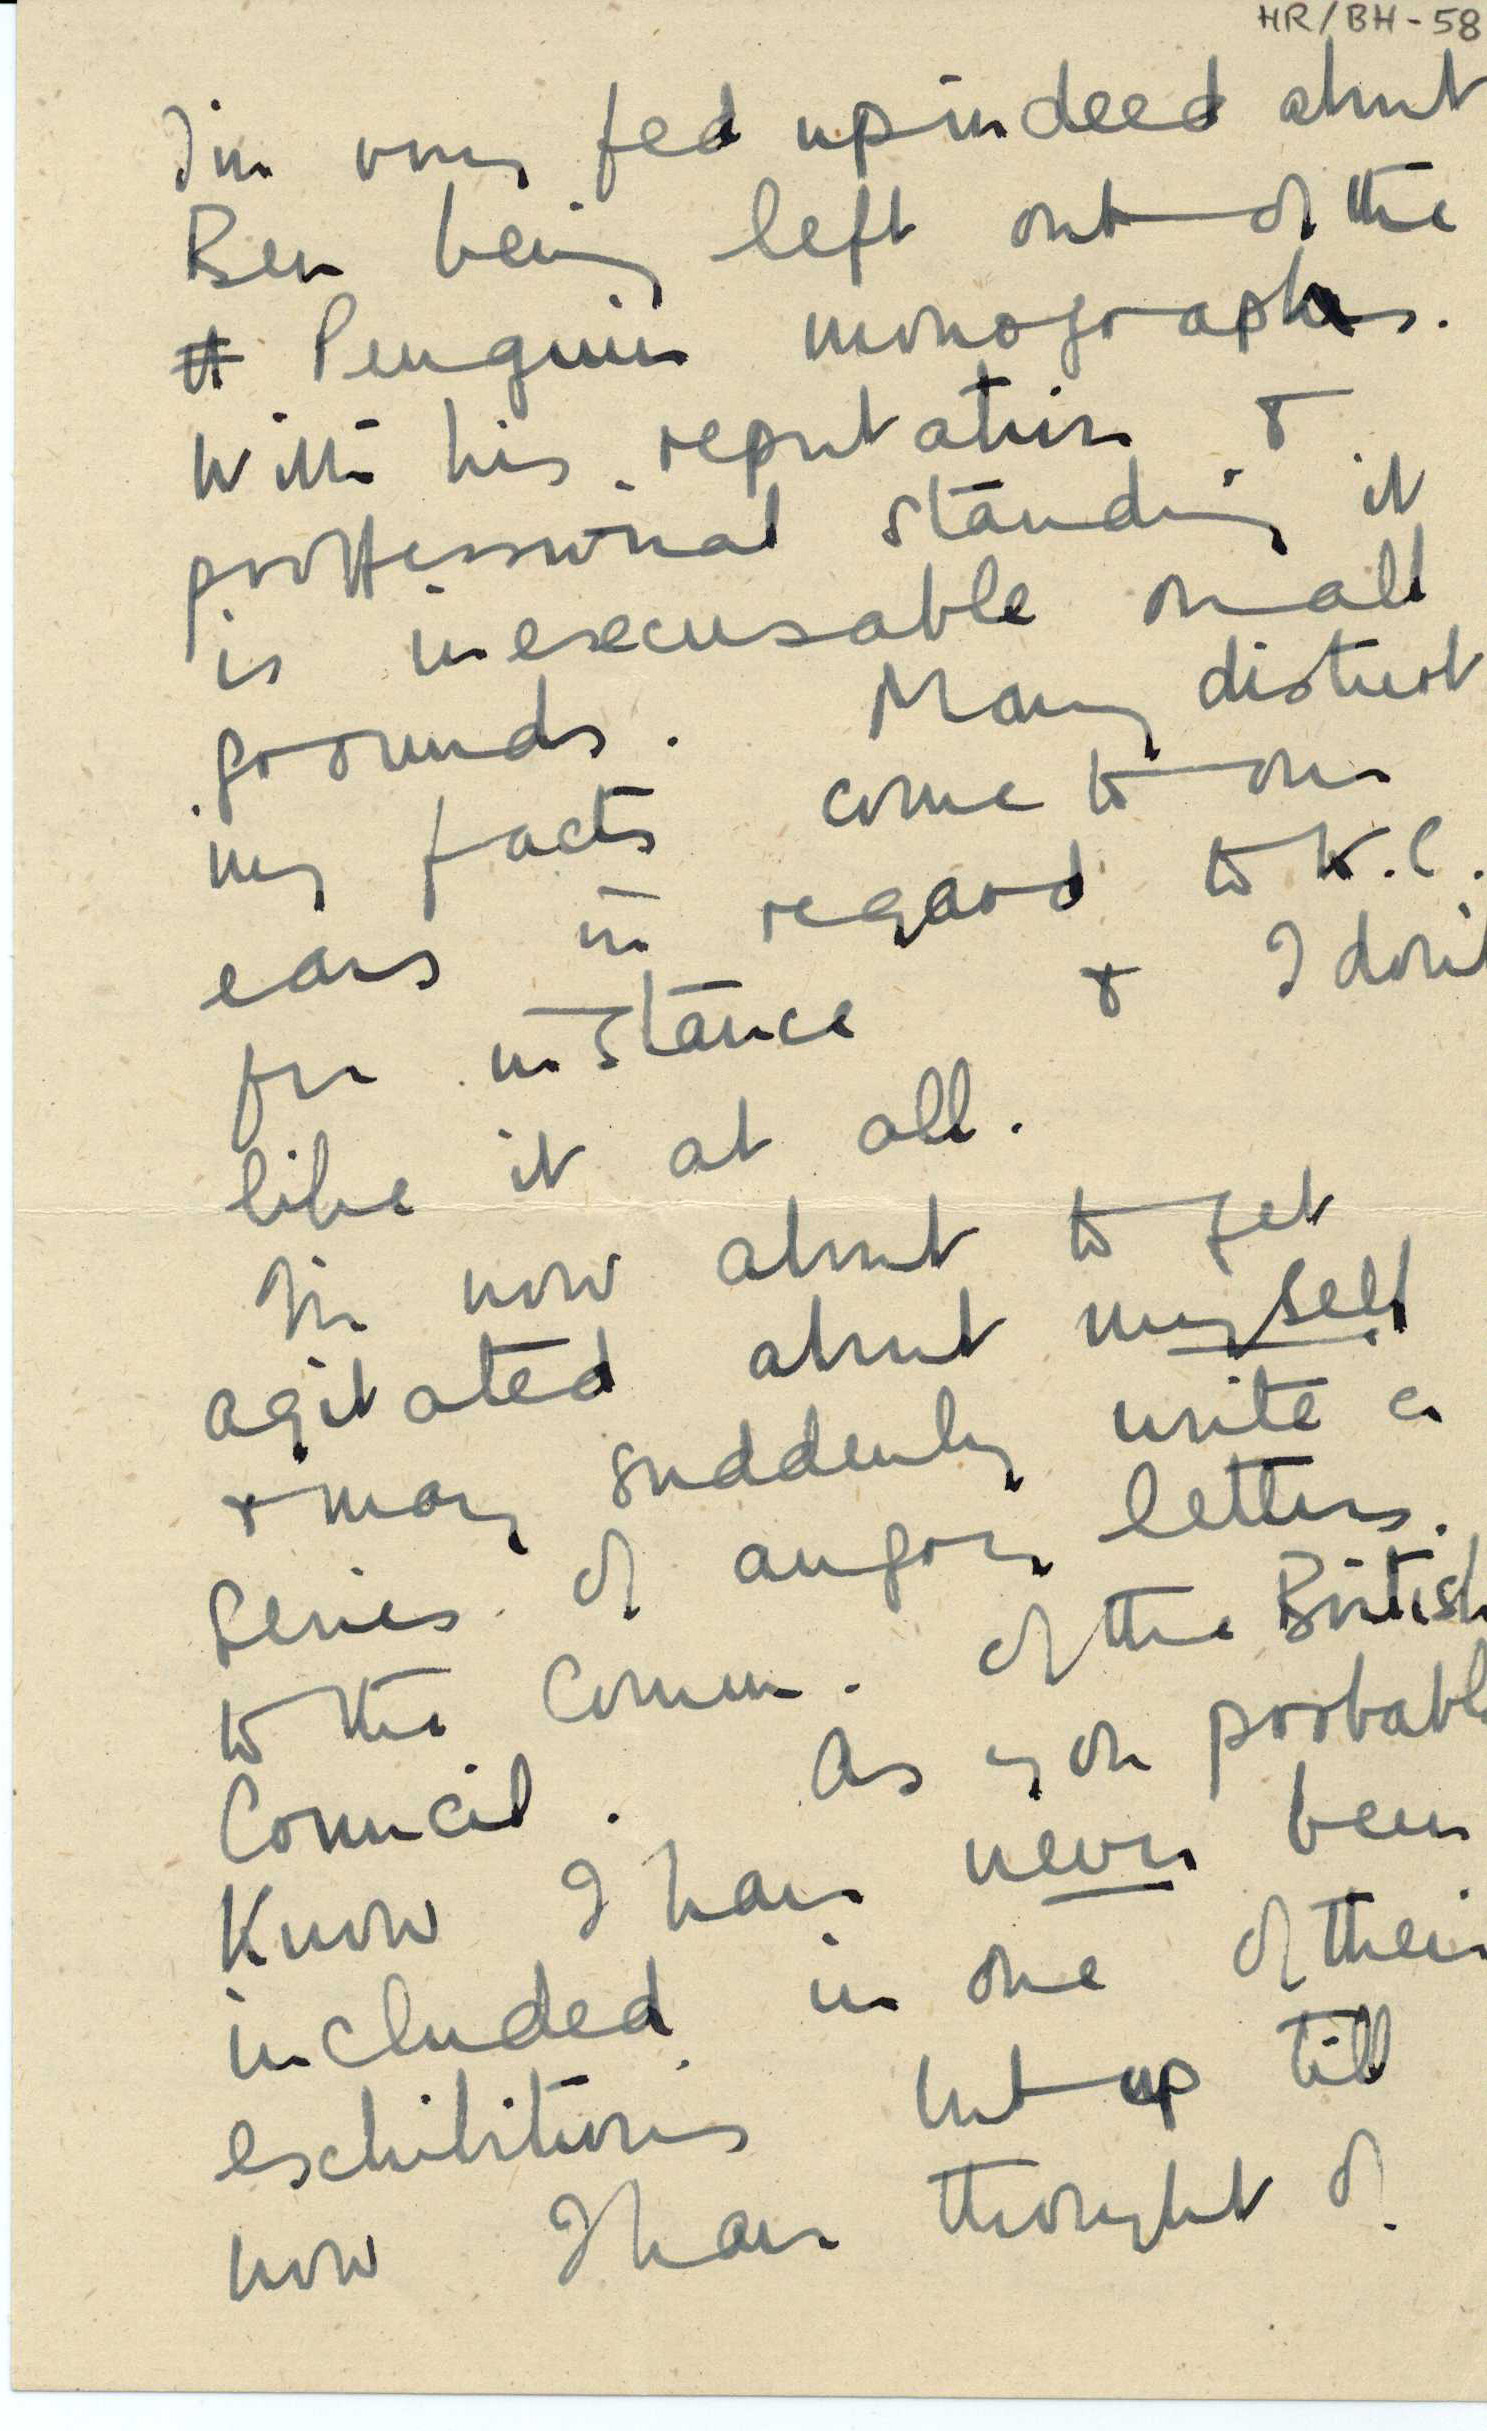 HR/BH-58
I'm very fed up indeed about
Ben being left out of the
Penguin monographs.
With his reputation &
professional standing it
is inexcusable on all
grounds. Many disturb
ing facts come to our
ears in regard to K.C.
for instance & I don't
like it at all.
I'm now about to get
agitated about myself
& may suddenly write a
series of angry letters.
to the Comm. of the British
Council. As you probably
know I have never been
included in one of their
exhibitions but up till
now I have thought of